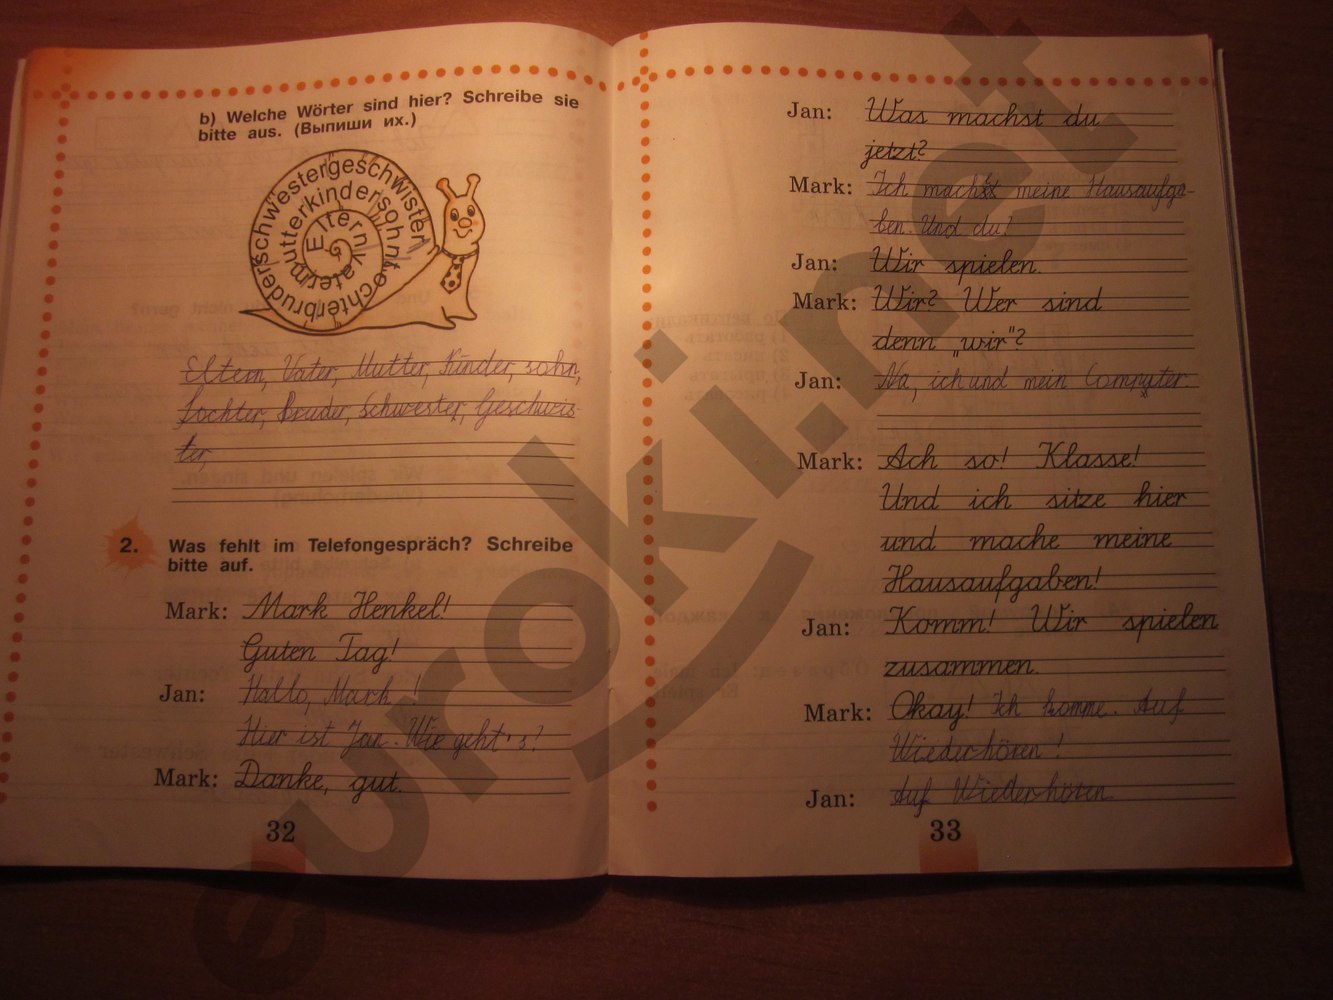 b) Welche Wörter sind hier? Schreibe sie
bitte aus. (Выпиши их.)
Elternvatermutterkindersohntochterbruderschwestergeschwister
Eltern, Vater, Mutter, Kinder, sohn,
tochter, Bruder, Schwester, Geschwis-
ter,
2. Was fehlt im Telefongespräch? Schreibe
bitte auf.
Mark: Mark Henkel!
Guten Tag!
Jan: Hallo, Mark!
Hier ist Jan. Wie geht's?
Mark: Danke, gut.
32
Jan: Was machst du
jetzt?
Mark: Ich mach meine Hausaufga-
ben. Und du?
Jan: Wir spielen.
Mark: Wir? Wer sind
denn „wir"?
Jan: Na, ich und mein Computer.
Mark: Ach so! Klasse!
Und ich sitze hier
und mache meine
Hausaufgaben!
Jan: Komm! Wir spielen
zusammen.
Mark: Okay! Ich komme. Auf
Wiederhören!
Jan: Auf Wiederhören
33
euroki.net